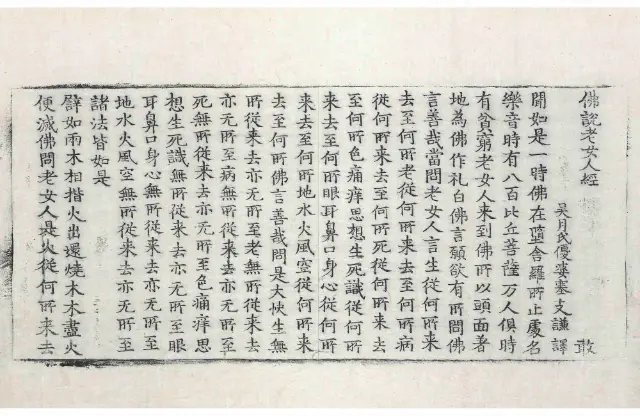 佛說老女人經
吳月氏優婆塞支謙譯　敢
聞如是一時佛在墮舍羅所止處名
樂音時有八百比丘菩薩万人俱時
有貧窮老女人來到佛所以頭面著
地為佛作礼白佛言願欲有所問佛
言善哉當問老女人言生從何所來
去至何所老從何所來去至何所病
從何所來去至何所死從何所來去
至何所色痛痒思想生死識從何所
來去至何所眼耳鼻口身心從何所
來去至何所地水火風空從何所來
去至何所佛言善哉問是大快生無
所從来去亦无所至老無所從来去
亦无所至病無所從来去亦无所至
死無所從来去亦无所至色痛痒思
想生死識無所從来去亦无所至眼
耳鼻口身心無所從来去亦无所至
地水火風空無所從来去亦无所至
諸法皆如是
譬如兩木相揩火出還燒木木盡火
便滅佛問老女人是火從何所来去